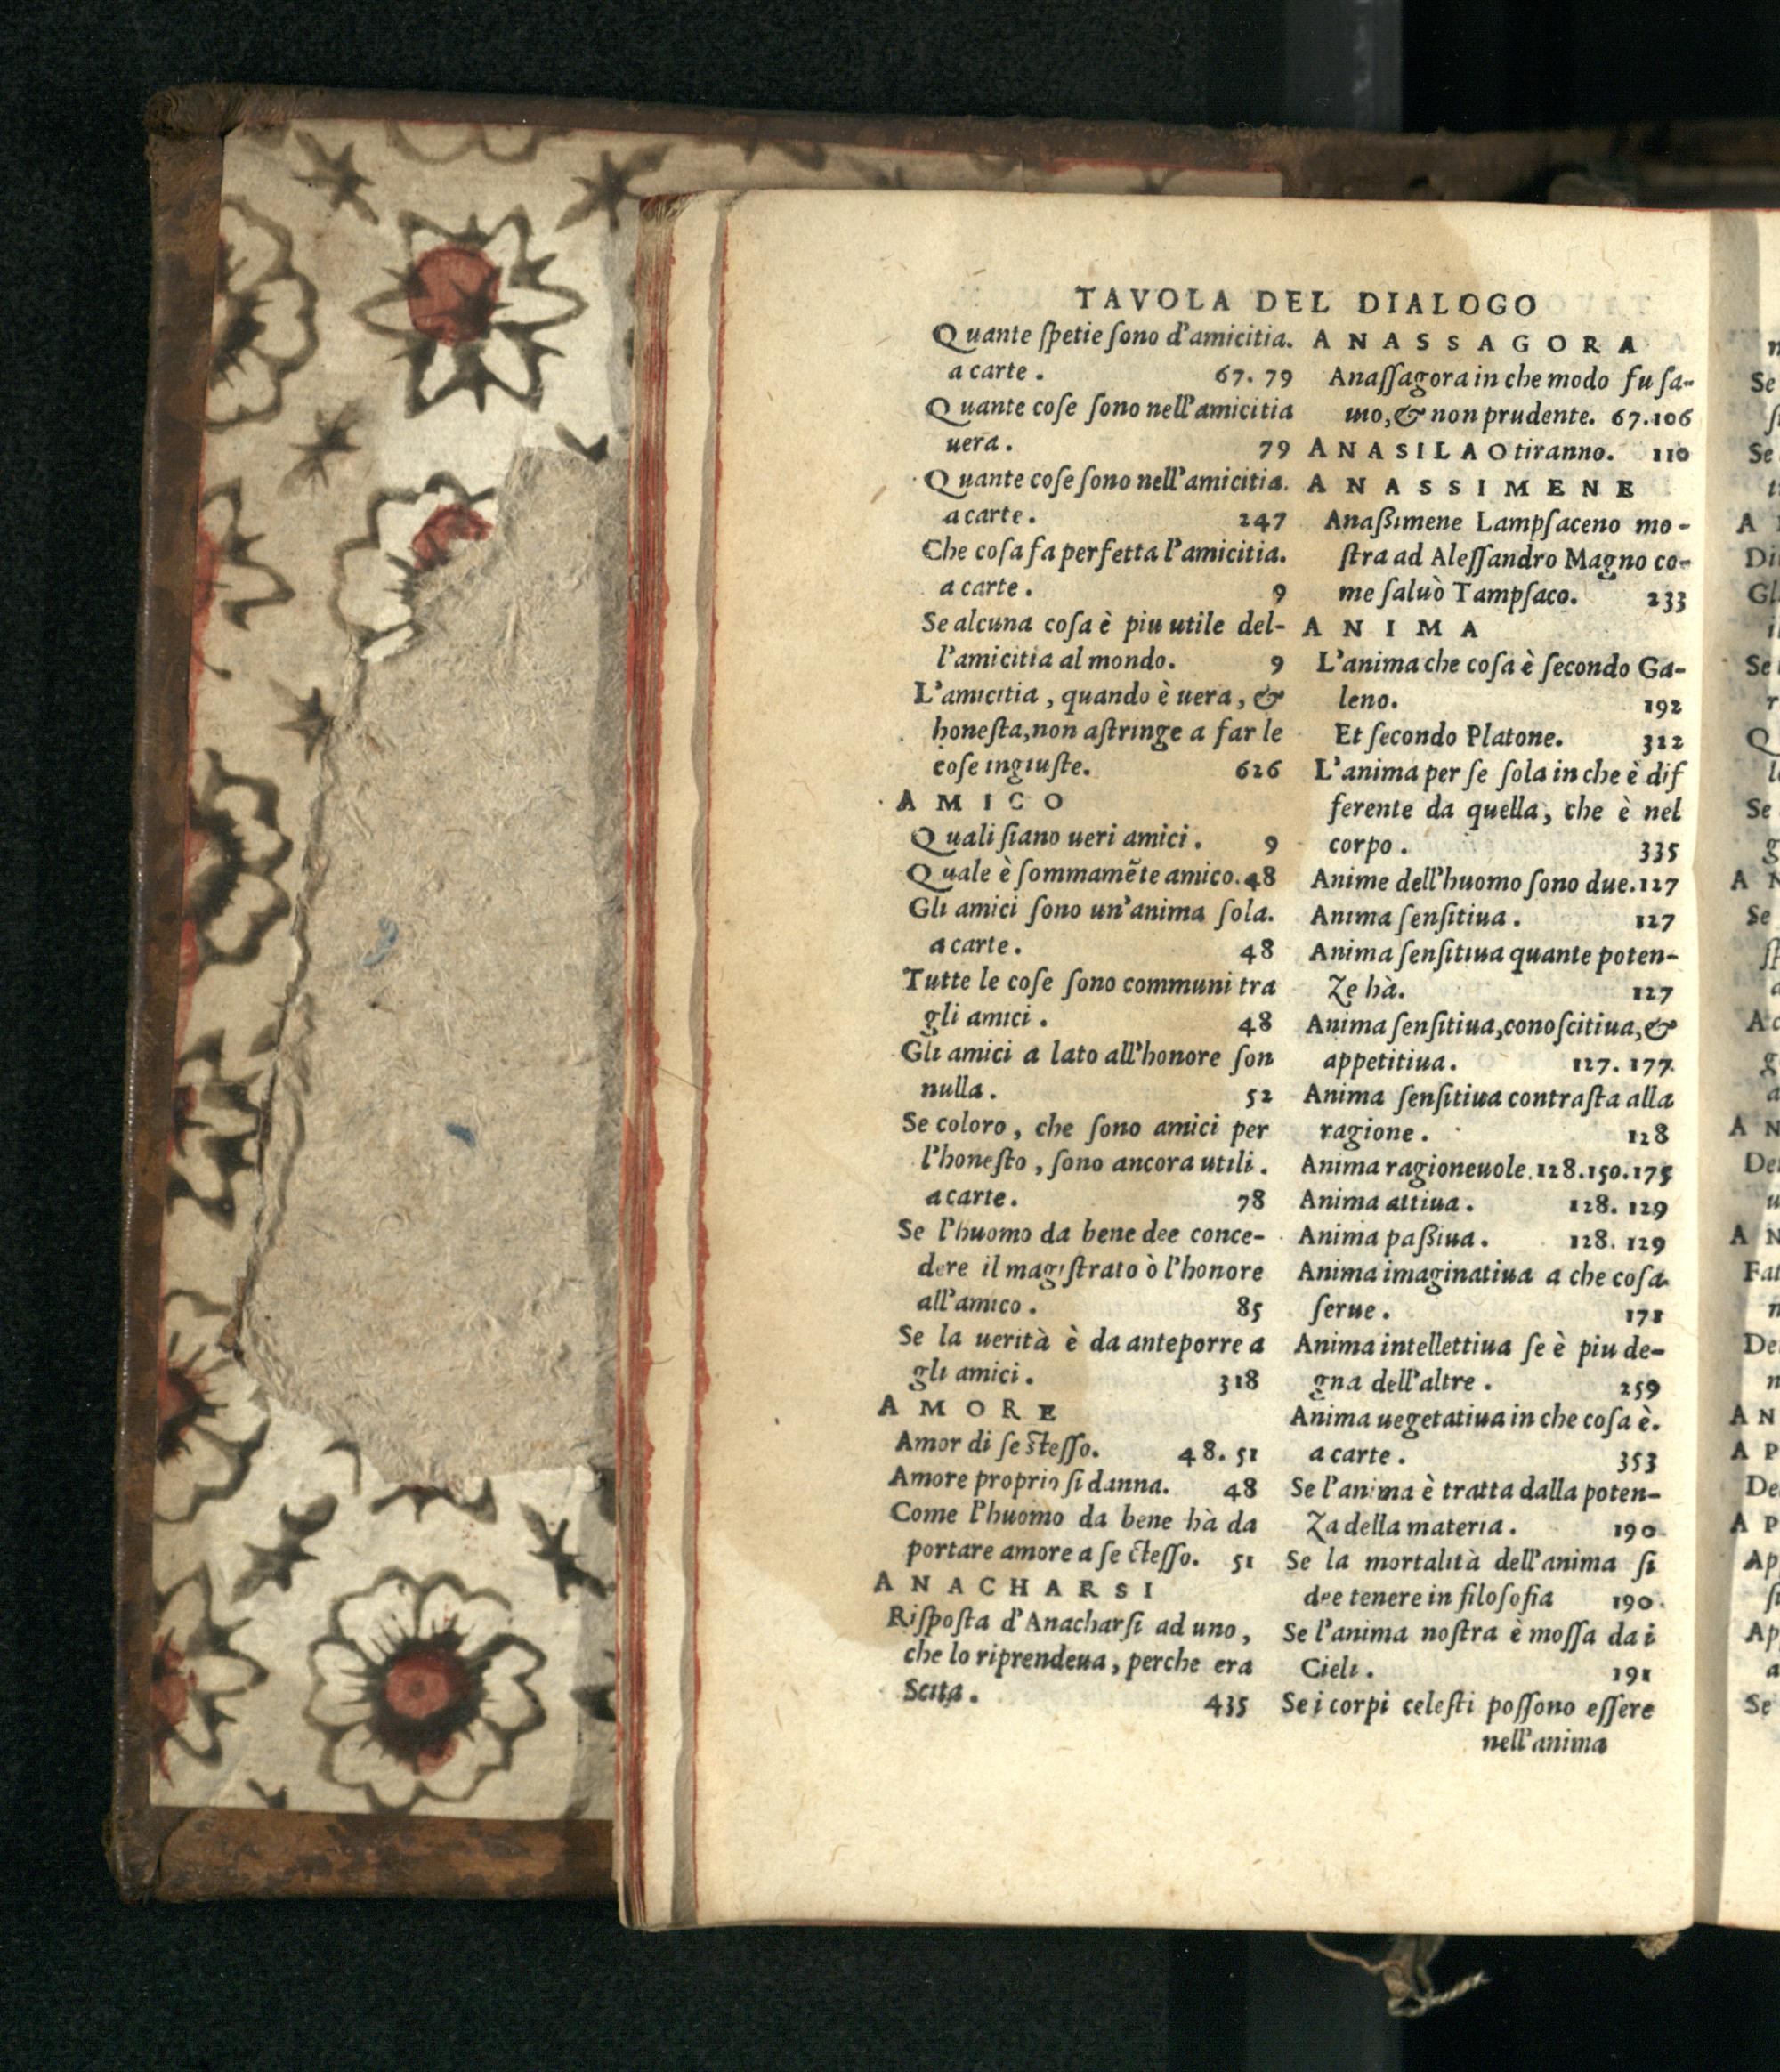 TAVOLA DEL DIALOGO
Quante ſpetie ſono d'amicitia.
a carte. 67. 79
Quante coſe ſono nell'amicitia
uera. 79
Quante coſe ſono nell'amicitia.
a carte. 247
Che coſa fa perfetta l'amicitia.
a carte. 9
Se alcuna coſa è piu utile del-
l'amicitia al mondo. 9
L'amicitia, quando è uera, &
honeſta, non aſtringe a far le
coſe ingiuſte. 626
AMICO
Quali ſiano ueri amici. 9
Quale è ſommamẽte amico. 48
Gli amici ſono un'anima ſola.
a carte. 48
Tutte le coſe ſono communi tra
gli amici. 48
Gli amici a lato all'honore ſon
nulla. 52
Se coloro, che ſono amici per
l'honeſto, ſono ancora utili.
a carte. 78
Se l'huomo da bene dee conce-
dere il magiſtrato ò l'honore
all'amico. 85
Se la uerità è da anteporre a
gli amici. 318
AMORE
Amor di ſe ſteſſo. 48. 51
Amore proprio ſi danna. 48
Come l'huomo da bene hà da
portare amore a ſe ſteſſo. 51
ANACHARSI
Riſpoſta d'Anacharſi ad uno,
che lo riprendeua, perche era
Scita. 435
ANASSAGORA
Anaſſagora in che modo fu ſa-
uio, & non prudente. 67. 106
ANASILAO tiranno. 110
ANASSIMENE
Anaßimene Lampſaceno mo-
ſtra ad Aleſſandro Magno co-
me ſaluò Tampſaco. 233
ANIMA
L'anima che coſa è ſecondo Ga-
leno. 192
Et ſecondo Platone. 312
L'anima per ſe ſola in che è dif
ferente da quella, che è nel
corpo. 335
Anime dell'huomo ſono due. 127
Anima ſenſitiua. 127
Anima ſenſitiua quante poten-
ze hà. 127
Anima ſenſitiua, conoſcitiua, &
appetitiua. 127. 177
Anima ſenſitiua contraſta alla
ragione. 128
Anima ragioneuole. 128. 150. 175
Anima attiua. 128. 129
Anima paßiua. 128. 129
Anima imaginatiua a che coſa
ſerue. 171
Anima intellettiua ſe è piu de-
gna dell'altre. 259
Anima uegetatiua in che coſa è.
a carte. 353
Se l'anima è tratta dalla poten-
za della materia. 190
Se la mortalità dell'anima ſi
dee tenere in filoſofia 190
Se l'anima noſtra è moſſa da i
Cieli. 191
Se i corpi celeſti poſſono eſſere
nell'anima